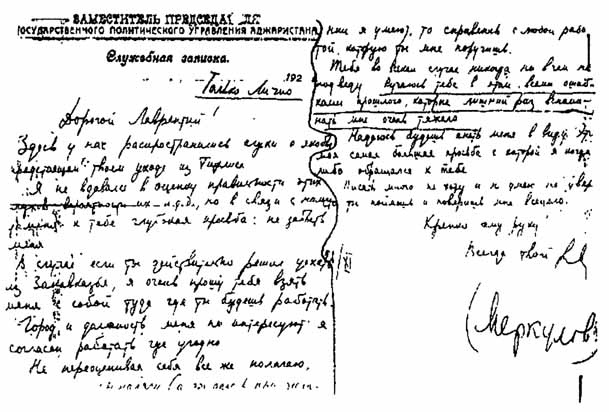 ЗАМЕСТИТЕЛЬ ПРЕДСЕДАТЕЛЯ
ГОСУДАРСТВЕННОГО ПОЛИТИЧЕСКОГО УПРАВЛЕНИЯ АДЖАРИСТАНА
Служебная записка.
192
Только Лично
Дорогой Лаврентий!
Здесь у нас распространились слухи о якобы
предстоящем твоем уходе из Тифлиса
Я не вдаюсь в оценку правильности этих
слухов вероятности их и.т.д., но в связи с ними
к тебе глубокая просьба: не забыть
меня
В случае если ты действительно решил уехать
из Закавказья, я очень прошу тебя взять
меня с собой туда где ты будешь работать.
Город и должность меня не интересуют я
согласен работать где угодно
Не переоценивая себя все же полагаю,
я умею), то справлюсь с любой рабо
той которую ты мне поручишь.
Тебя во всяком случае никогда ни в чем не
подведу Ручаюсь тебе в этом всеми ошиб
ками прошлого, которые лишний раз вспоми
нать мне очень тяжело
Надеюсь будешь иметь меня в виду. Эта
моя самая большая просьба с которой я когда
либо обращался к тебе
Писать много не хочу и не думаю
ты поймешь и поверишь мне вполне.
Крепко жму руку
Всегда твой
(Меркулов)